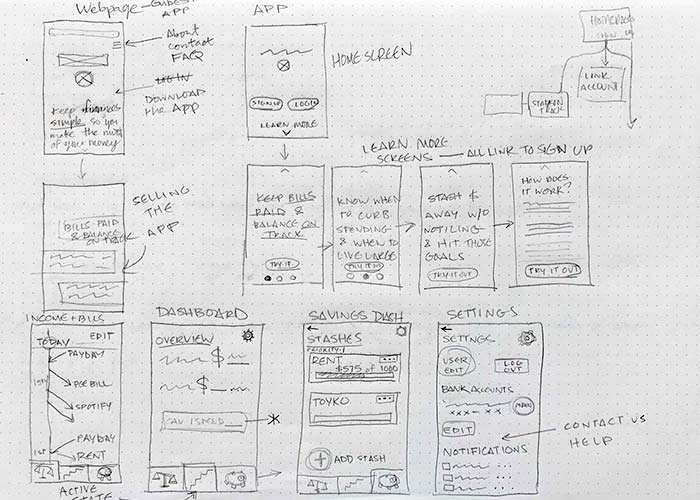 Webpage
APP
About
Contact
FAQ
LOG IN
DOWNLOAD
the APP
Keep finances
simple so you
make the most
of your money
SELLING
THE
APP
BILLS PAID
& BALANCE
ON TRACK
APP
HOMESCREEN
SIGN UP
LOGIN
LEARN MORE
LEARN MORE
SCREENS — ALL LINK TO SIGN UP
KEEP BILLS
PAID &
BALANCE ON
TRACK
TRY IT
KNOW WHEN
TO CURB
SPENDING
& WHEN TO
LIVE LARGE
TRY IT
STASH $
AWAY W/O
NOTICING
& HIT THOSE
GOALS
TRY IT OUT
HOW DOES
IT WORK?
TRY IT OUT
LINK
ACCOUNT
TRACK
INCOME + BILLS
TODAY
EDIT
PAYDAY
15TH
PGE BILL
SPOTIFY
PAYDAY
1ST
RENT
ACTIVE
STATE
DASHBOARD
OVERVIEW
$
$
CAN I SPEND
SAVINGS DASH
STASHES
PRIORITY 1
RENT
$575 of 1000
TOYKO
+ ADD STASH
SETTINGS
SETTINGS
USER
EDIT
LOG
OUT
BANK ACCOUNTS
EDIT
NOTIFICATIONS
CONTACT US
HELP